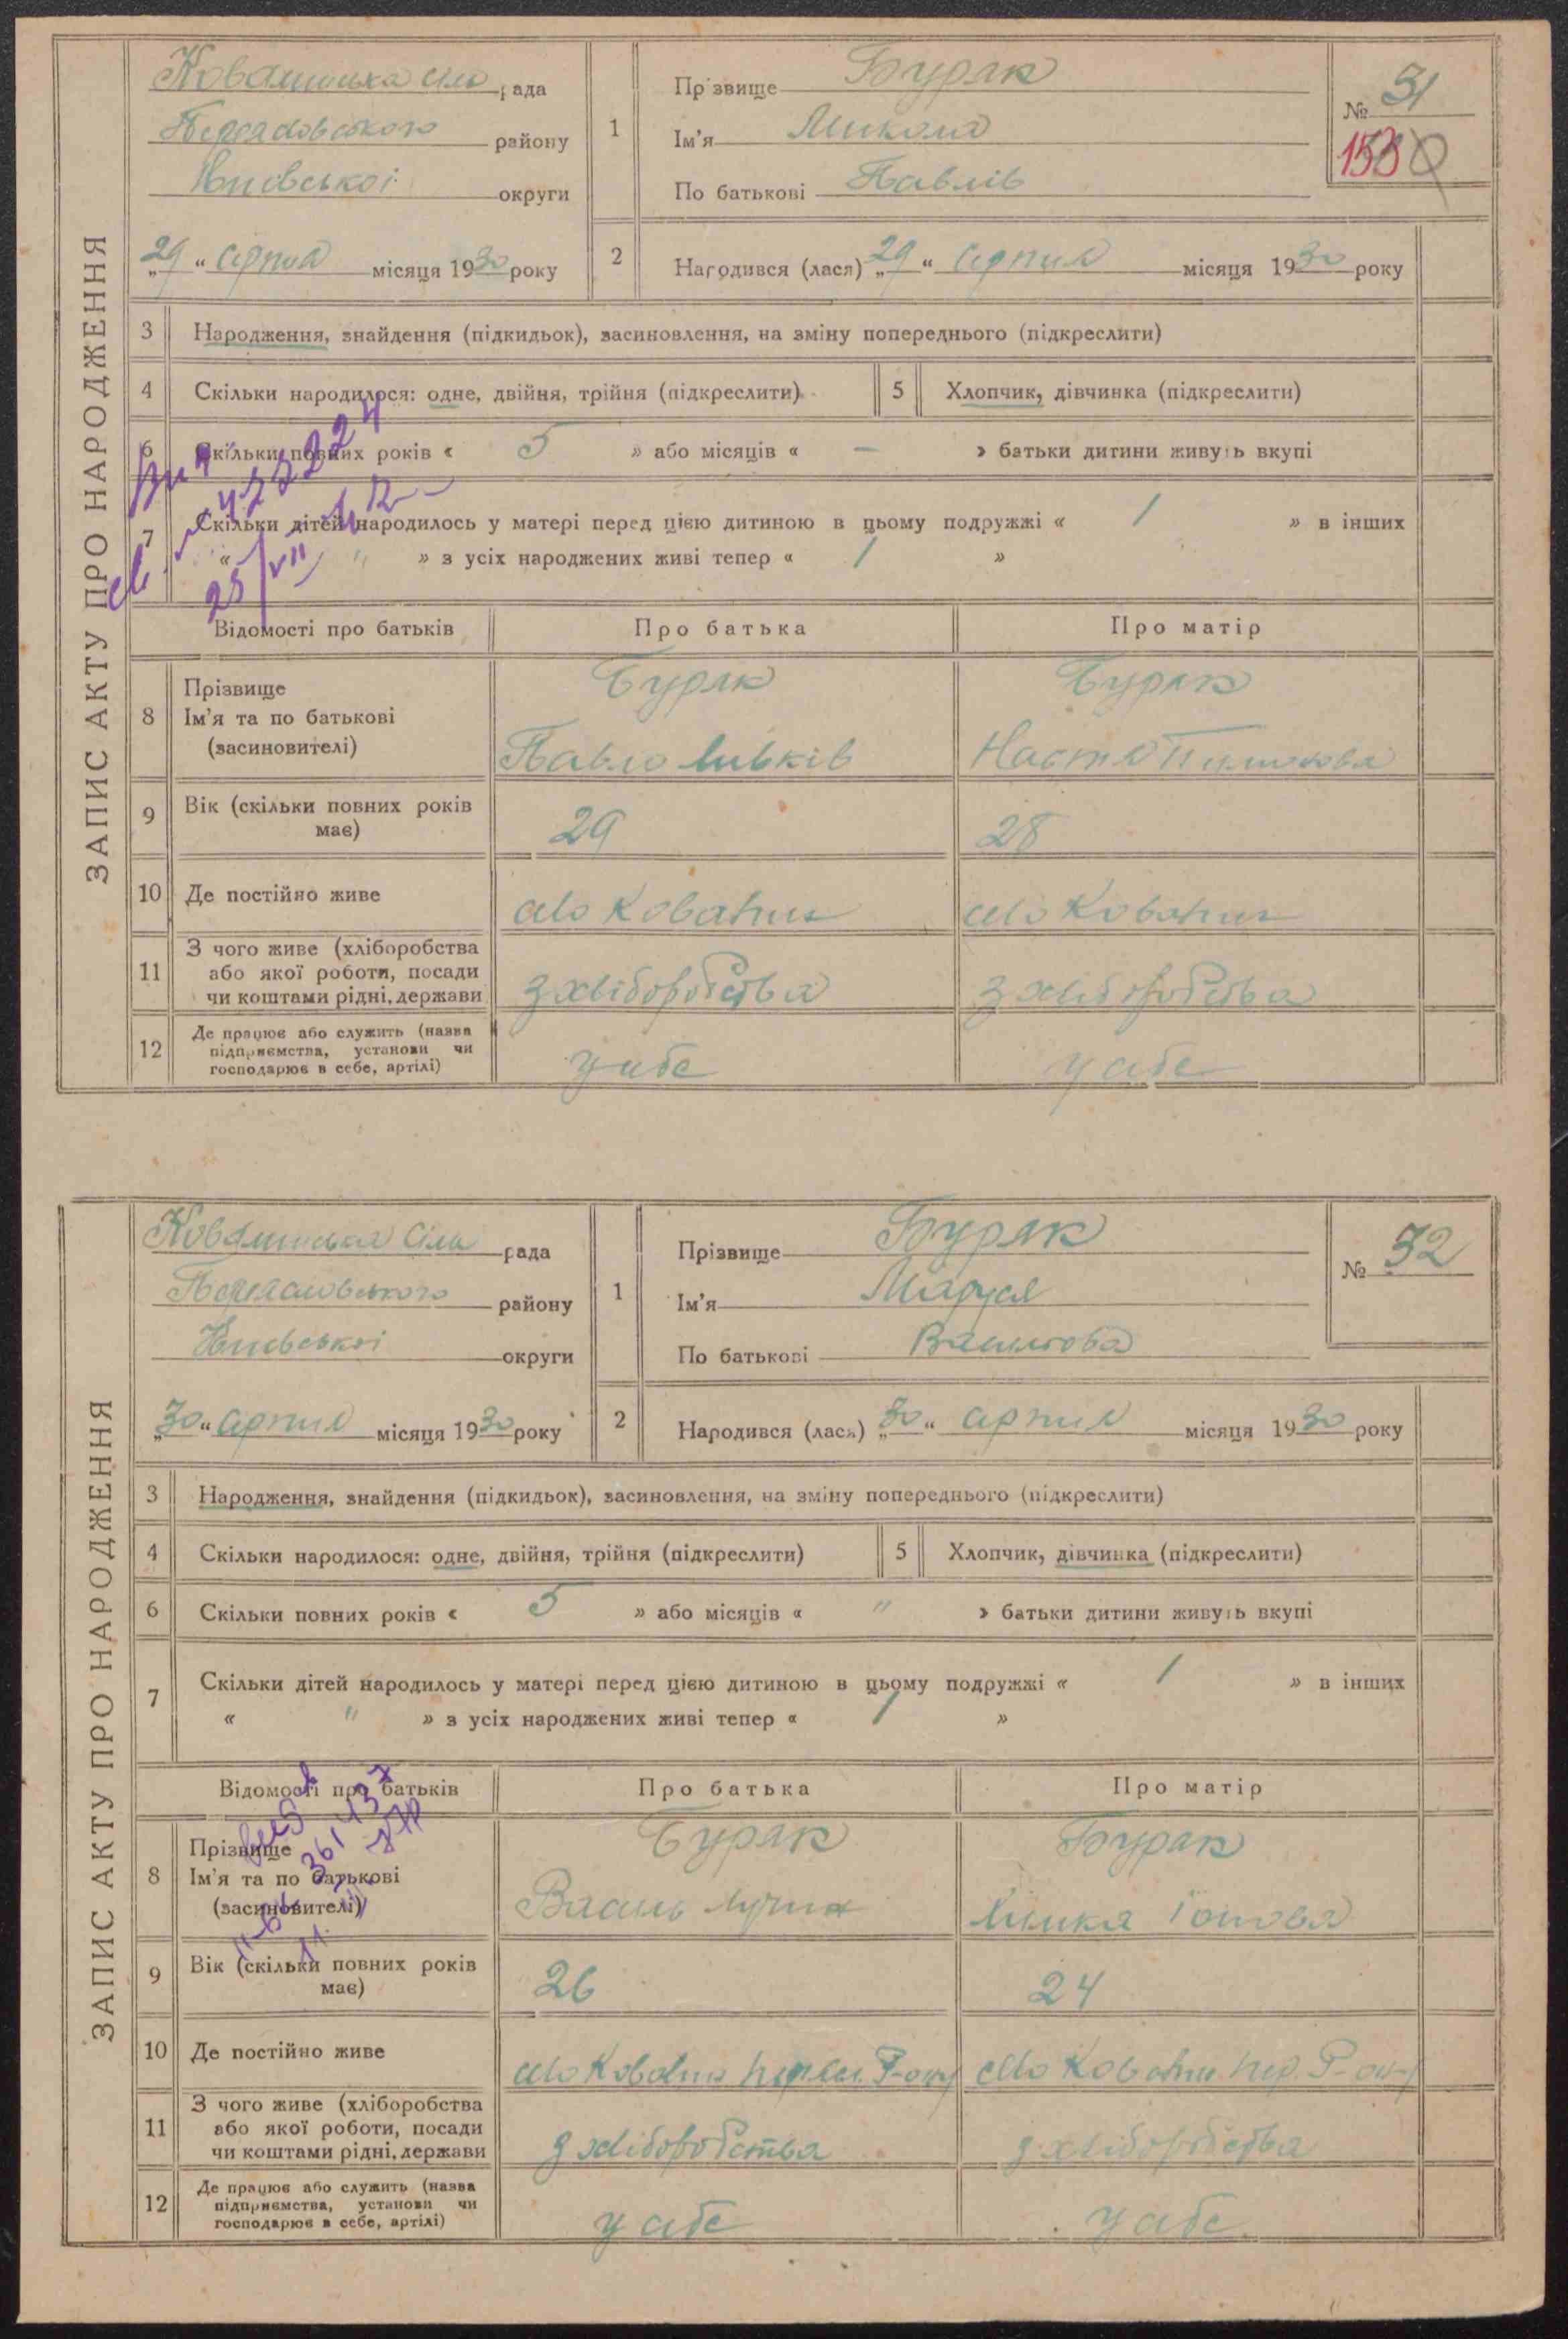 ЗАПИС АКТУ ПРО НАРОДЖЕННЯ
Ковалинська сіль рада
Переяславського району
Київської округи
„29“ серпня місяця 1930 року
1
Прізвище Буряк
Ім'я Микола
По батькові Павлів
№ 31
2
Народився (лася) „29“ серпня місяця 1930 року
3 Народження, знайдення (підкидьок), засиновлення, на зміну попереднього (підкреслити)
4 Скільки народилося: одне, двійня, трійня (підкреслити)
5 Хлопчик, дівчинка (підкреслити)
6 Скільки повних років « 5 » або місяців « — » батьки дитини живуть вкупі
7 Скільки дітей народилось у матері перед цією дитиною в цьому подружжі « 1 » в інших
« " » з усіх народжених живі тепер « 1 »
Відомості про батьків Про батька Про матір
8 Прізвище Буряк Буряк
Ім'я та по батькові
(засиновителі) Павло Настя
9 Вік (скільки повних років
має) 29 28
10 Де постійно живе село Ковалин село Ковалин
11 З чого живе (хліборобства
або якої роботи, посади
чи коштами рідні, держави з хліборобства з хліборобства
12 Де працює або служить (назва
підприємства, установи чи
господарює в себе, артілі) у себе у себе
ЗАПИС АКТУ ПРО НАРОДЖЕННЯ
Ковалинська сіль рада
Переяславського району
Київської округи
„30“ серпня місяця 1930 року
1
Прізвище Буряк
Ім'я Маруся
По батькові Василова
№ 32
2
Народився (лася) „30“ серпня місяця 1930 року
3 Народження, знайдення (підкидьок), засиновлення, на зміну попереднього (підкреслити)
4 Скільки народилося: одне, двійня, трійня (підкреслити)
5 Хлопчик, дівчинка (підкреслити)
6 Скільки повних років « 5 » або місяців « " » батьки дитини живуть вкупі
7 Скільки дітей народилось у матері перед цією дитиною в цьому подружжі « 1 » в інших
« " » з усіх народжених живі тепер « 1 »
Відомості про батьків Про батька Про матір
8 Прізвище Буряк Буряк
Ім'я та по батькові
(засиновителі) Василь
9 Вік (скільки повних років
має) 26 24
10 Де постійно живе село Ковалин село Ковалин
11 З чого живе (хліборобства
або якої роботи, посади
чи коштами рідні, держави з хліборобства з хліборобства
12 Де працює або служить (назва
підприємства, установи чи
господарює в себе, артілі) у себе у себе